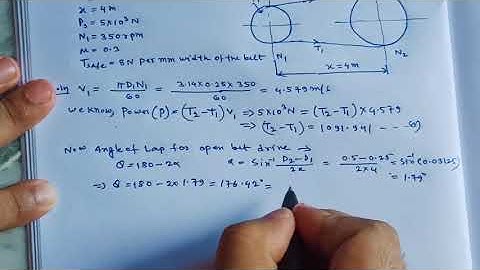 x = 4m
P₂ = 5×10³N
N₁ = 350 rpm
μ = 0.3
Tsafe = 8N per mm width of the belt
N₁ T₁ N₂
x = 4m
Soln V₁ = πD₁N₁/60 = 3.14×0.25×350/60 = 4.579 m/s
We know, Power (P) = (T₂-T₁)V₁ ⇒ 5×10³N = (T₂-T₁)×4.579
⇒ (T₂-T₁) = 1091.941
Now Angle of Lap for open belt drive →
θ = 180-2α α = Sin⁻¹ D₂-D₁/2x = 0.5-0.25/2×4 = Sin⁻¹(0.03125)
= 1.79°
⇒ θ = 180-2×1.79 = 176.42° =